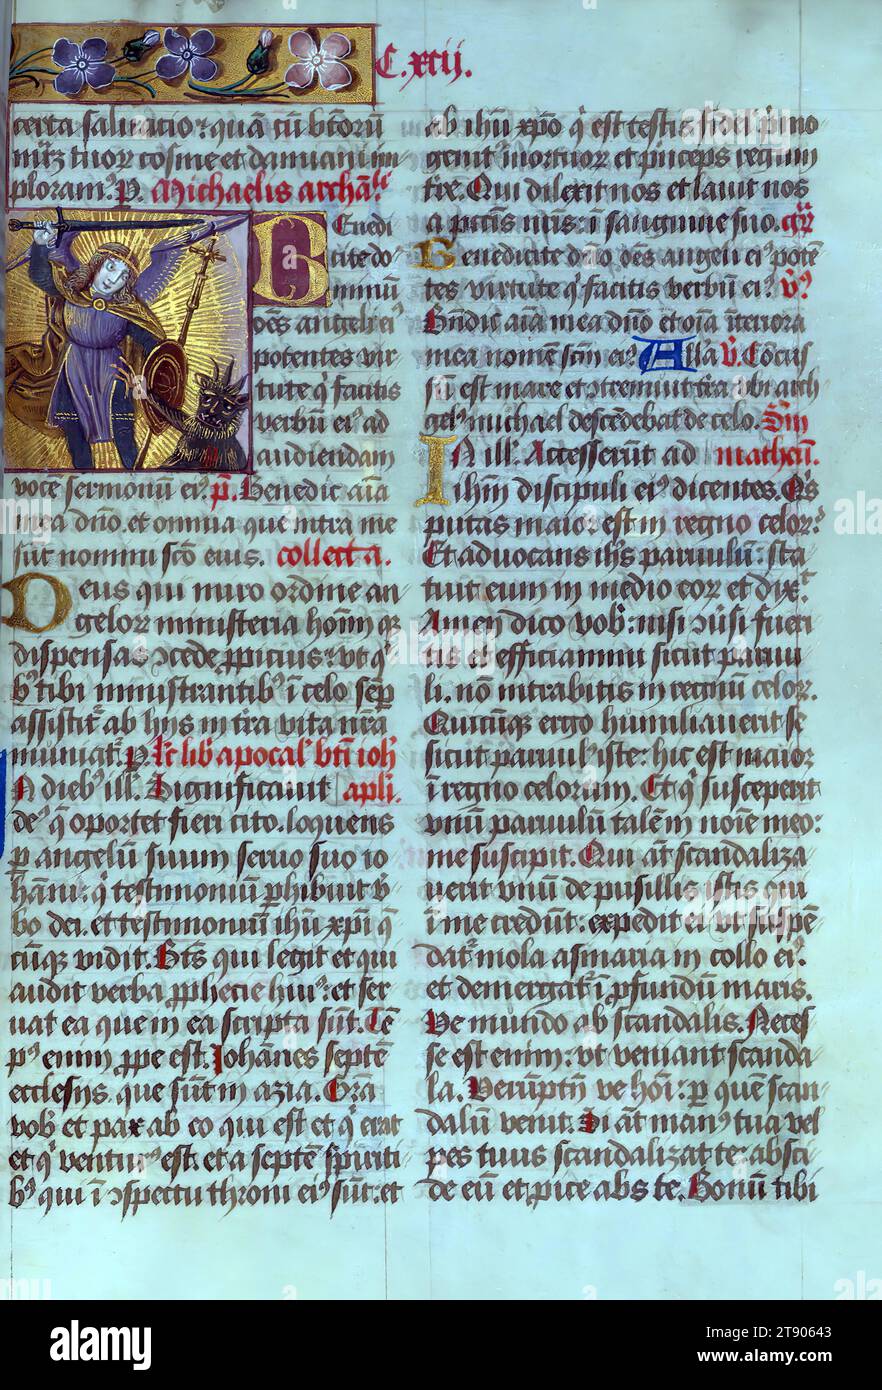 C.xcij.
certa saluatio: quã cũ vtorũ
mr̃z tuor̃ cosme et damiani im
ploram⁹. P. Michaelis archãli
BEnedi
cite do
minũ
oẽs angeli ei⁹
potentes vir
tute q̃ facitis
verbũ ei⁹ ad
audiendam
vocẽ sermonũ ei⁹. p̃. Benedic aĩa
mea dño. et omnia que intra me
sũt nomini scõ eius. collecta.
Deus qui miro ordine an
gelor̃ ministeria hoĩm q̃
dispensas ɔcede ꝓpicius: vt q̃
b⁹ tibi ministrantib⁹ ĩ celo sẽp
assistit̃ ab hijs in tr̃a vita nr̃a
muniat̃. P. Lc̃ lib̃ apocal̃ btĩ ioh̃
In dieb⁹ ill̃. Significauit apl̃i.
de⁹ q̃ oportet fieri cito. loquens
ꝑ angelũ suum seruo suo io
hãni: q̃ testimoniũ ꝑhibuit v̾
bo dei. et testimoniũ ihũ xp̃i q̃
cũq̃ vidit. Bt̃s qui legit et qui
audit verba ꝓphecie hui⁹: et ser
uat ea que in ea scripta sũt. Tẽ
p⁹ enim ꝓpe est. Iohãnes septẽ
ecclesijs que sũt in azia. Gr̃a
vob̾ et pax ab eo qui est et q̃ erat
et q̃ ventur⁹ est. et a septẽ spiriti
b⁹ qui ĩ ɔspectu throni ei⁹ sũt: et
ab ihũ xp̃o q̃ est testis fidei p̃mo
genit⁹ mortuor̃ et p̃nceps regum
tr̃e. Qui dilexit nos et lauit nos
a pctĩs nr̃is: ĩ sanguine suo. Gr̃
Benedicite dño oẽs angeli ei⁹ potẽ
tes virtute q̃ facitis verbũ ei⁹. V̾.
Bñdic aĩa mea dño et oĩa ĩteriora
mea nomẽ scm̃ ei⁹. All̃a V̾. Cõcus
sũ est mare et ɔtremuit tr̃a vbi arch
gel⁹ michael descẽdebat de celo. Sm̃
IN ill̃. Accesserũt ad matheũ.
ihm̃ discipuli ei⁹ dicentes. Q̃s
putas maior est in regno celor̃.
Et aduocans ih̃s paruulũ: sta
tuit eum in medio eor̃ et dix̃.
Amen dico vob̾: nisi ɔũsi fueri
tis et efficiamini sicut paruu
li. nõ intrabitis in regnũ celor̃.
Quicũq̃ ergo humiliauerit se
sicut paruul⁹ iste: hic est maior
ĩ regno celorum. Et q̃ susceperit
vnũ paruulũ talẽ in noĩe meo:
me suscipit. Qui aũt scandaliza
uerit vnũ de pusillis istis qui
ĩ me credũt: expedit ei vt suspẽ
dat̃ mola asinaria in collo ei⁹.
et demergat̃ ĩ ꝓfundũ maris.
Ve mundo ab scandalis. Neces
se est enim: vt veniant scanda
la. Verũptñ ve hoĩ: ꝑ quẽ scan
dalũ venit. Si aũt man⁹ tua vel
pes tuus scandalizat te: absci
de eũ et ꝓice abs te. Bonũ tibi
alamy
Image ID: 2T90643
www.alamy.com